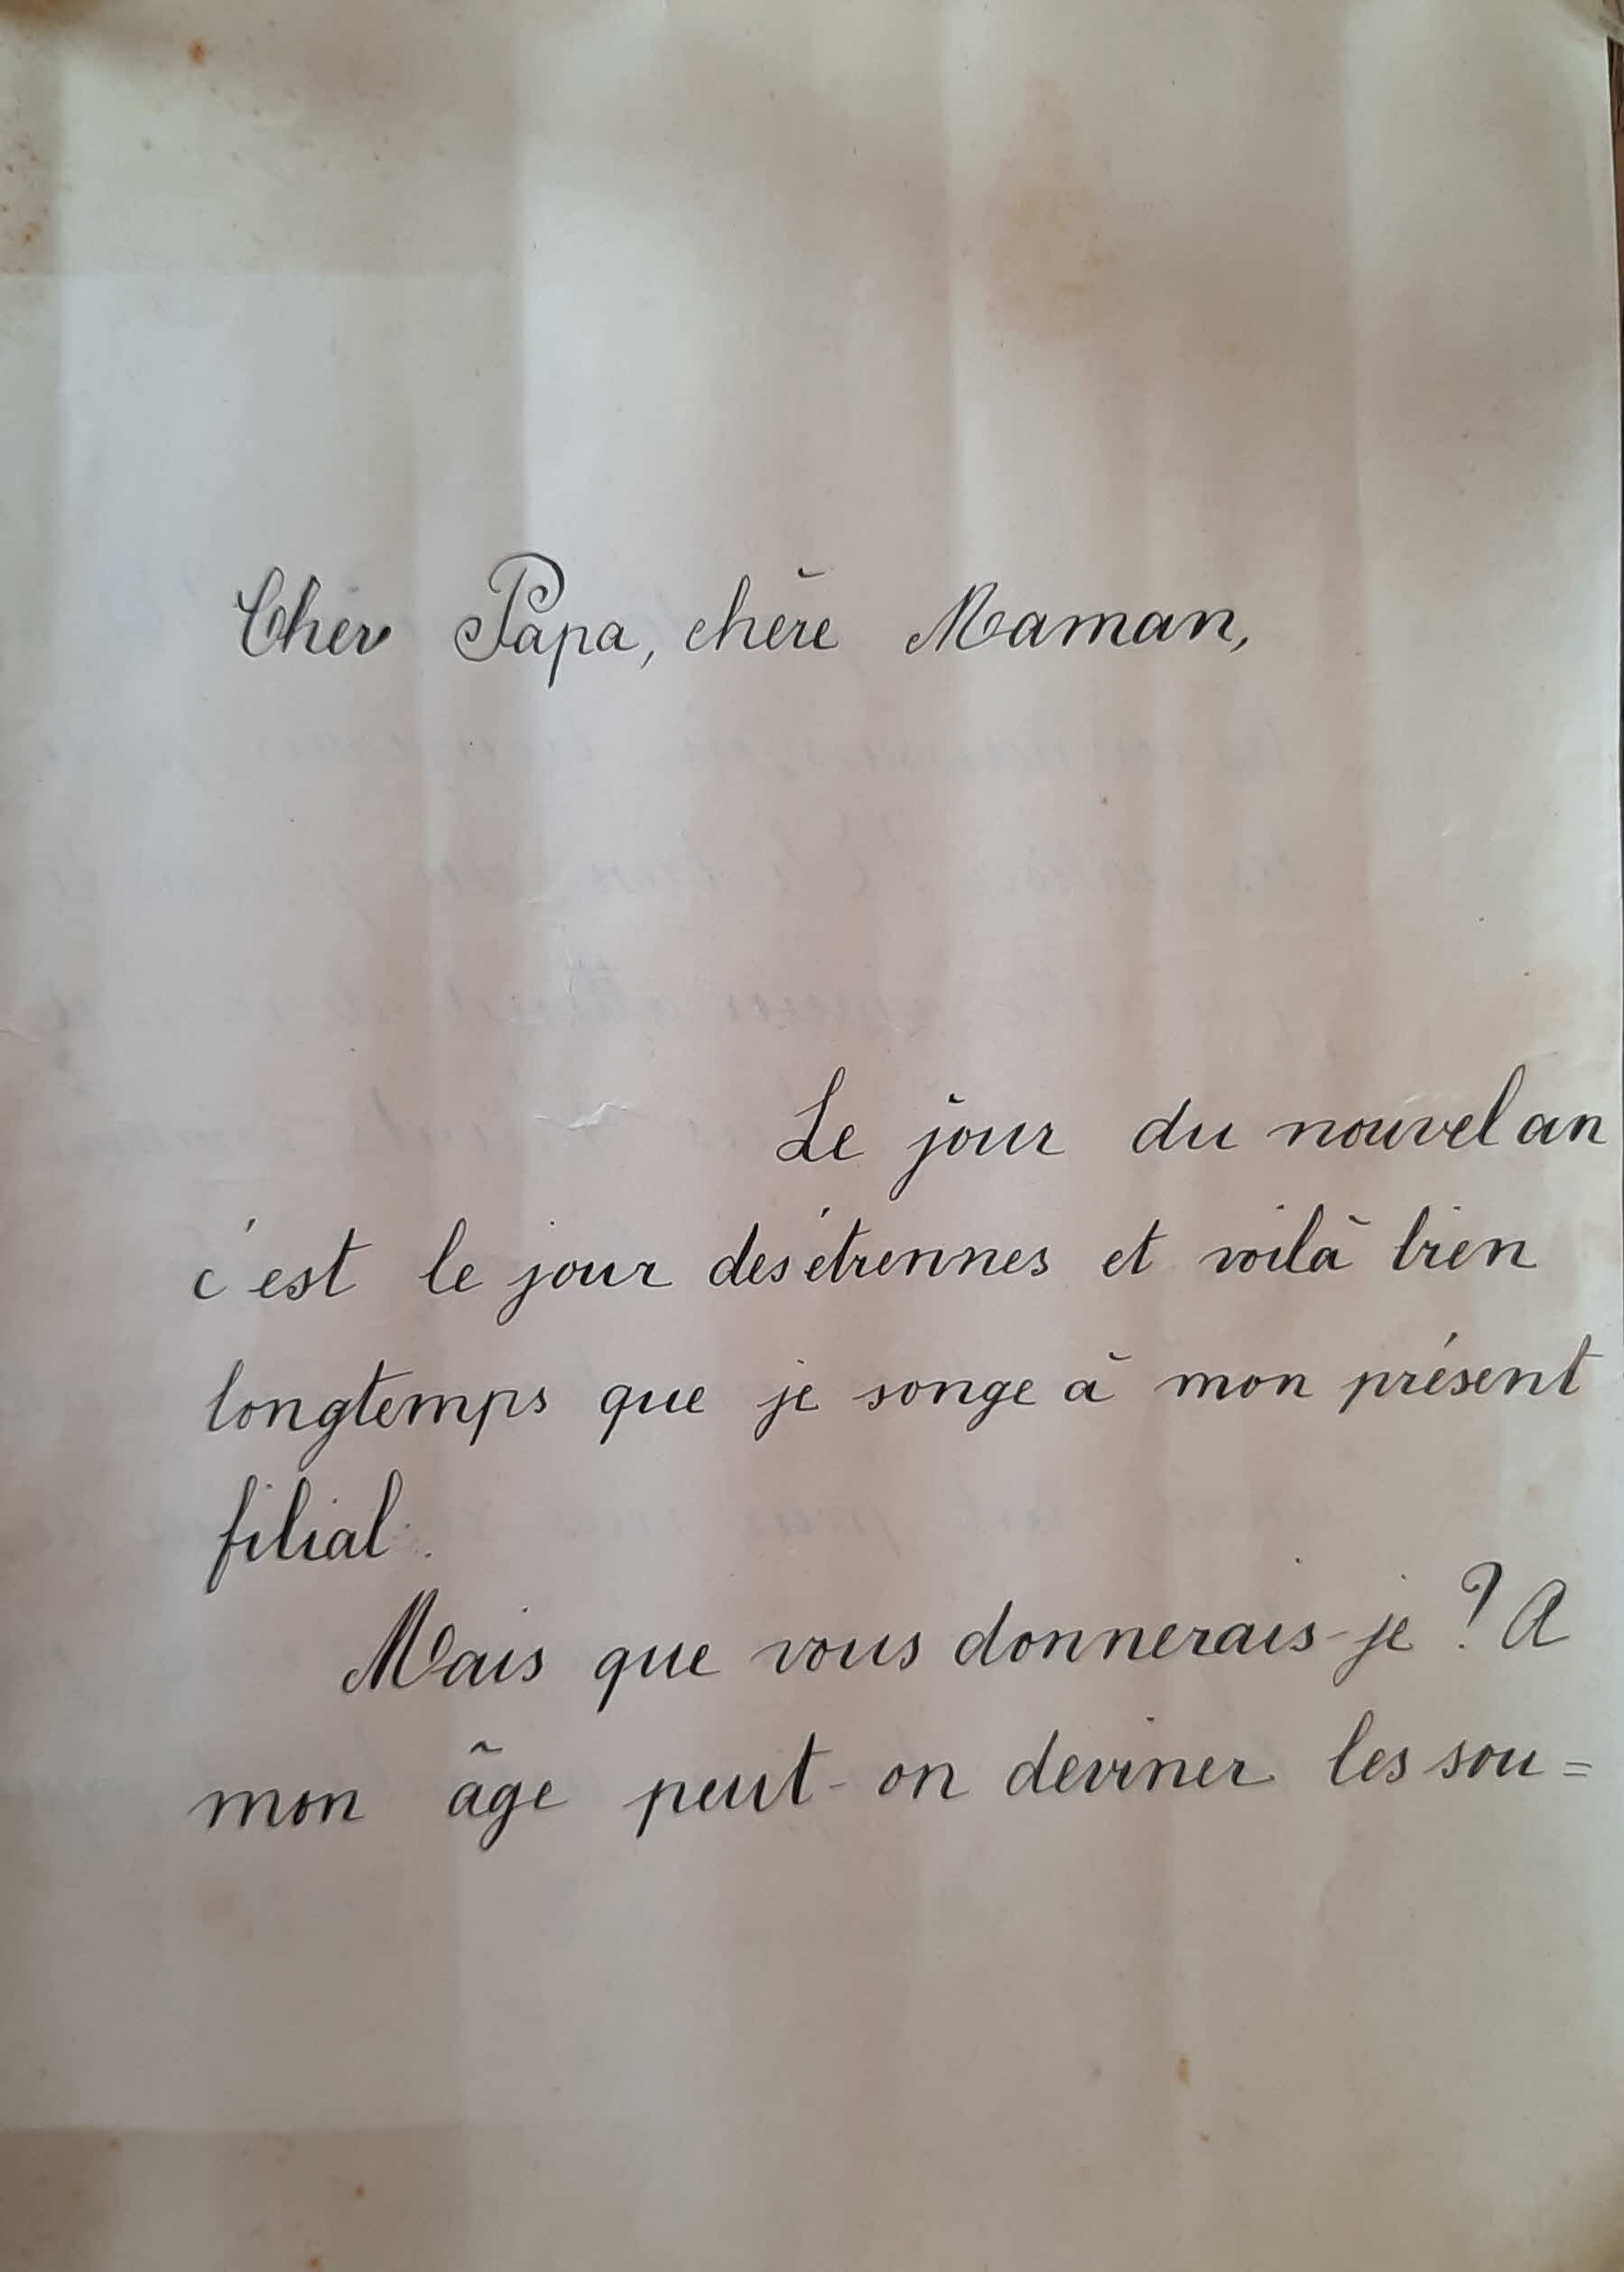 Cher Papa, chère Maman,
Le jour du nouvel an
c'est le jour des étrennes et voilà bien
longtemps que je songe à mon présent
filial.
Mais que vous donnerais-je ? A
mon âge peut-on deviner les sou=